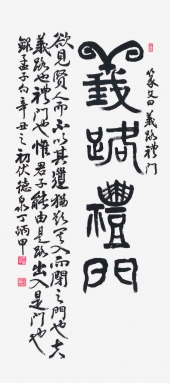 篆文曰義路禮門
義路禮門
欲見賢人而不以其道猶欲其入而閉之門也夫
義路也禮門也惟君子能由是路出入是門也
孟子句辛丑之初伏德泉丁炳甲